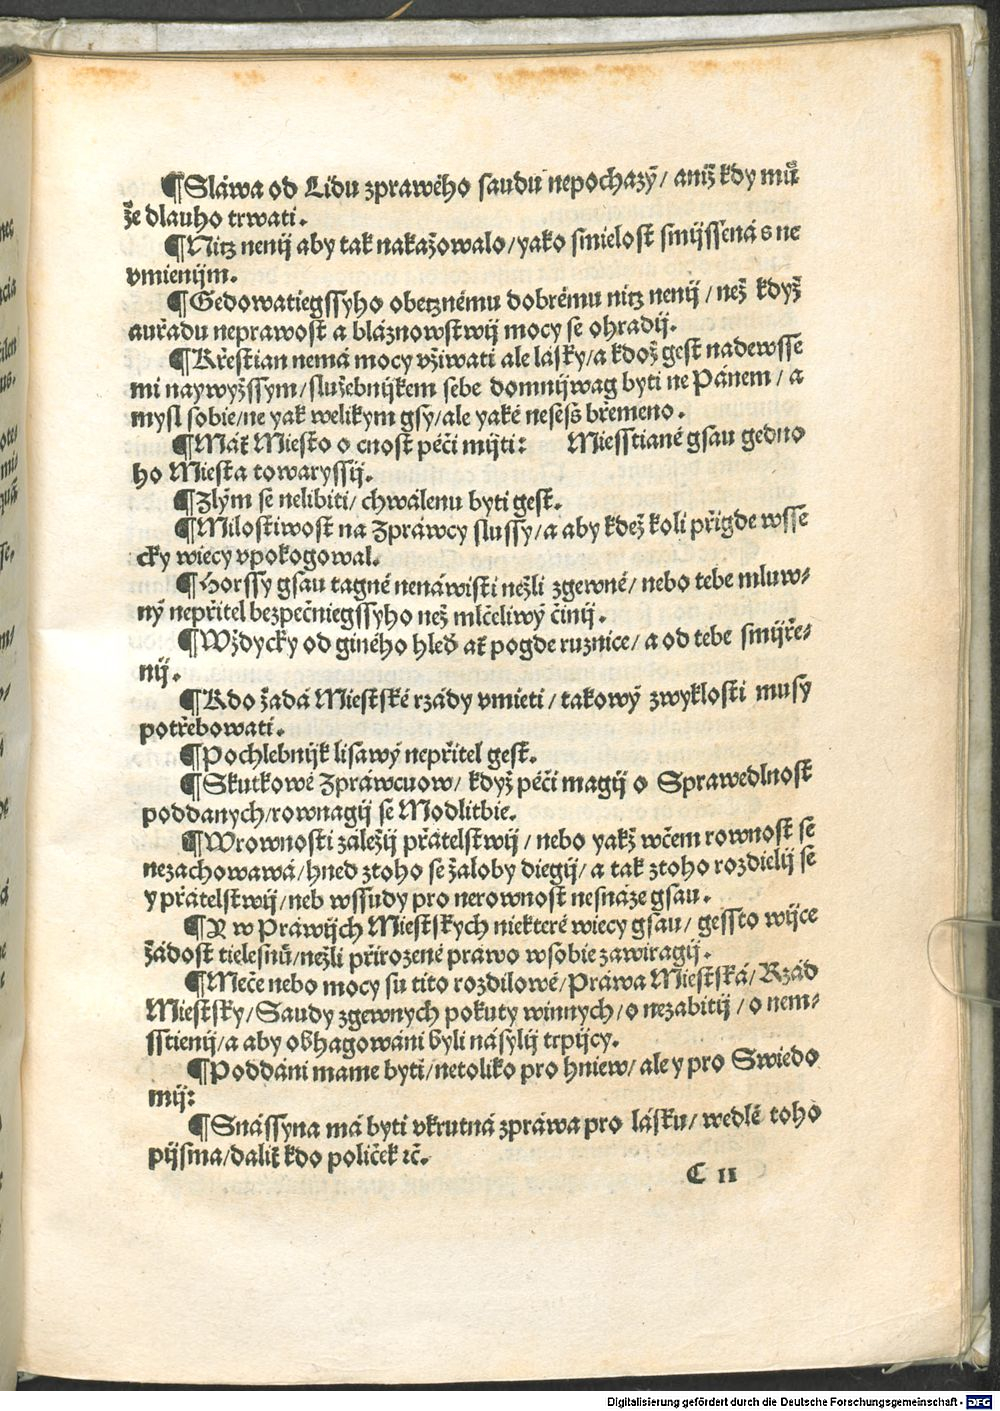 ¶Sláwa od Lidu zprawého saudu nepochazý/ aniž kdy mů
že dlauho trwati.
¶Nitz nenij aby tak nakažowalo/yako smielost smijssená s ne
vmienijm.
¶Gedowatiegssyho obetznému dobrému nitz nenij / než když
auřadu neprawost a bláznowstwij mocy se ohradij.
¶Křestian nemá mocy vžiwati ale lásky/a kdož gest nadewsse
mi naywyžssym/služebnijkem sebe domnijwag byti ne Pánem / a
mysl sobie/ne yak welikym gsy/ale yaké neseš břemeno.
¶Máť Miesto o cnost péči mijti: Miesstiané gsau gedno
ho Miesta towaryssij.
¶Zlým se nelibiti/ chwálenu byti gest.
¶Milostiwost na Zpráwcy slussy/a aby kdež koli přigde wsse
cky wiecy vpokogowal.
¶Horssy gsau tagné nenáwisti nežli zgewné/ nebo tebe mluw⸗
ný nepřitel bezpečniegssyho než mlčeliwý činij.
¶Wždycky od giného hleď ať pogde ruznice/a od tebe smijře⸗
nij.
¶Kdo žadá Miestské rzády vmieti / takowý zwyklosti musy
potřebowati.
¶Pochlebnijk lisawý nepřitel gest.
¶Skutkowé Zpráwcuow/ když péči magij o Sprawedlnost
poddanych/rownagij se Modlitbie.
¶Wrownosti záležij přátelstwij / nebo yakž wčem rownost se
nezachowawá/hned ztoho se žaloby diegij/ a tak ztoho rozdielij se
y přátelstwij/neb wssudy pro nerownost nesnáze gsau.
¶Y w Práwijch Miestskych niekteré wiecy gsau/ gessto wijce
žádost tielesnů/nežli přirozené práwo wsobie zawiragij.
¶Meče nebo mocy su tito rozdilowé/Práwa Miestská/ Rzád
Miestsky/Saudy zgewnych pokuty winnych/o nezabitij / o nem⸗
sstienij/a aby obhagowáni byli násylij trpijcy.
¶Poddáni mame byti/netoliko pro hniew/ ale y pro Swiedo
mij:
¶Snássyna má byti vkrutná zpráwa pro lásku/ wedlé toho
pijsma/daliť kdo poliček ꝛč.
C II
Digitalisierung gefördert durch die Deutsche Forschungsgemeinschaft - DFG